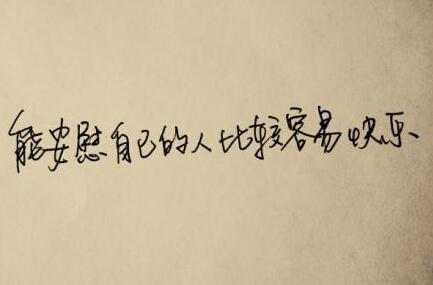 能安慰自己的人比较容易快乐、